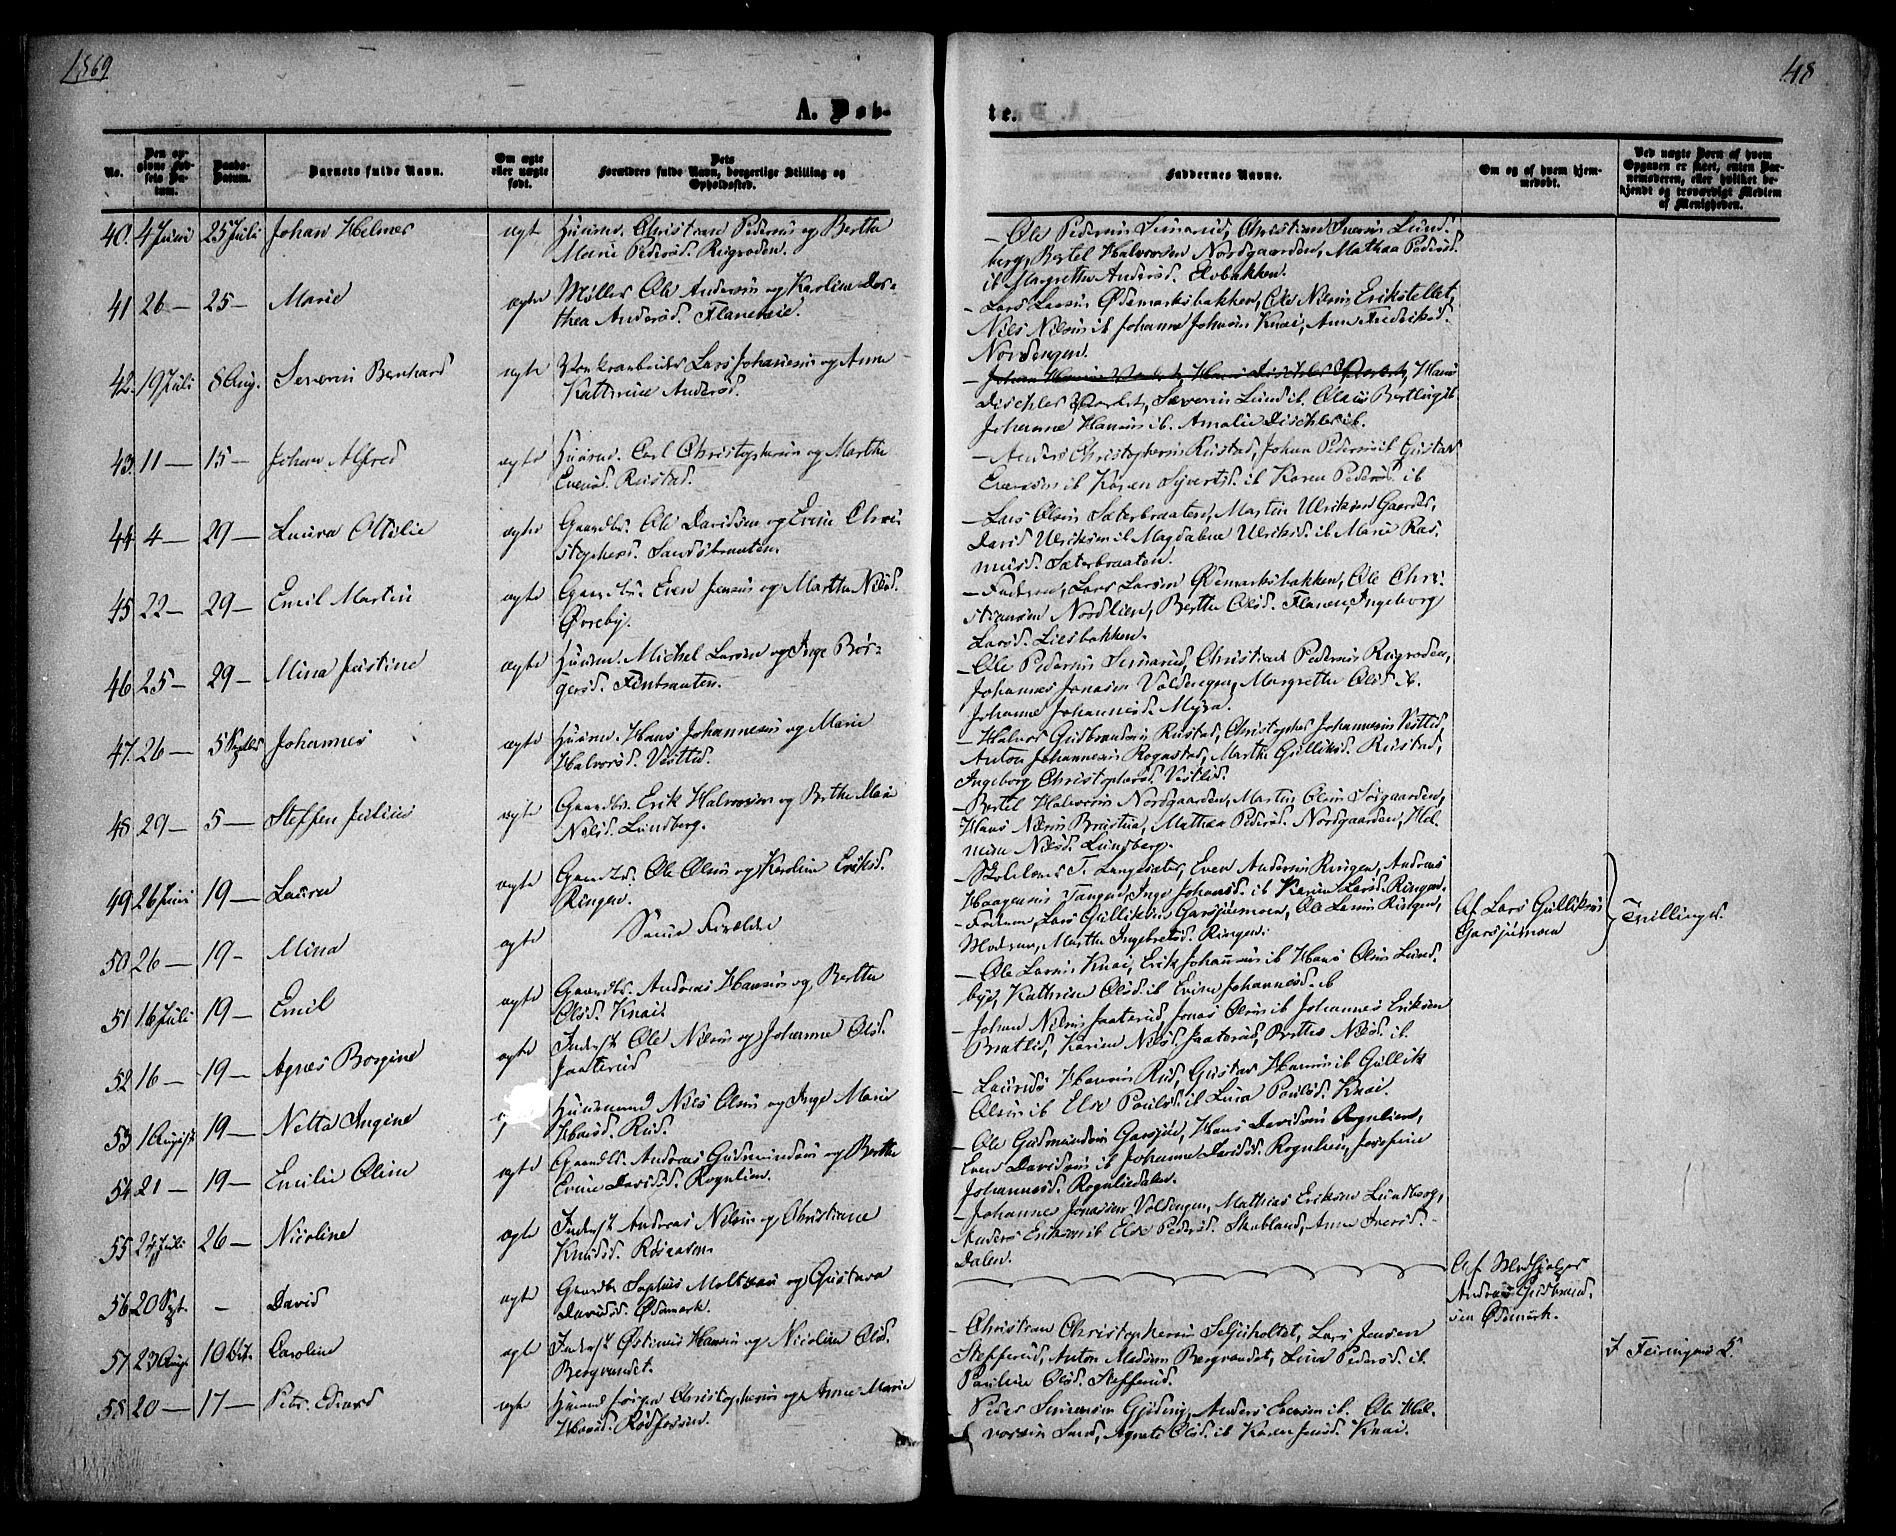 1869
48
A. Døb-
te.
No.
Den op-
givne Fød-
sels Da-
tum.
Daabs-
Datum.
Barnets fulde Navn.
Om ægte
eller uægte
født.
Dets
Forældres fulde Navn, borgerlige Stilling og
Opholdssted.
Faddernes Navne.
Om og af hvem hjem-
medøbt.
Ved uægte Børn af hvem
Opgaven er skeet, enten Bar-
nemoderen, eller hvilket be-
kjendt og troværdigt Medlem
af Menigheden.
40. 4 Juni 25 Juli Johan Helmer ægte Huusm. Christian Pedersen og Berthe
Marie Pedersd. Rugroden.
- Ole Pedersen Simarud, Christian Iversen Lund-
berg, Bertel Halvorsen Nordgaarden, Mathea Pedersd.
ib Margrethe Andersd. Elvbakken.
41 26 — 25 — Marie ægte Møller Ole Andersen og Karoline Dor-
thea Andersd. Flaneie.
- Lars Larsen Ødemarksbakken, Ole Nilsen Erikstellet,
Niels Nilsen ib Johanne Johnsen Knai, Anne Fredriksd.
Nordengen.
42. 19 Juli 8 Aug. Severin Bernhard ægte Lars Johannesen og Anne
Kathrine Andersd.
Hans
Dischler Værket, Severin Lund ib. Olava Bertling ib
Johanne Hansen ib. Amalie Dischler ib.
43. 11 — 15 — Johan Alfred ægte Huusm. Carl Christophersen og Marthe
Evensd. Rustad.
- Anders Christophersen Rustad, Johan Pedersen ib Gustav
Evensen ib Karen Syvertsd. ib Karen Pedersd. ib
44. 4 — 29 — Laura Ottilie ægte Gaardbr. Ole Davidsen og Eveine Chri-
stophersd. Sandsbraaten.
- Lars Olsen Sæterbraaten, Martin Ulriksen Gaarder,
David Ulriksen ib Magdalene Ulriksd. ib Marie Ras-
musd. Sæterbraaten.
45 22 — 29 — Emil Martin ægte Gaardbr. Even Jensen og Marthe Nilsd.
Øvreby.
- Faderen, Lars Larsen Ødemarksbakken, Ole Chri-
stiansen Nordlien, Berthe Olsd. Flanen, Ingeborg
Larsd. Liesbakken.
46 25 — 29 — Mina Justine ægte Huusm. Michel Larsen og Inge Bør-
gersd. Finbraaten.
- Ole Pedersen Simarud, Christian Pedersen Rugroden,
Johannes Jonasen Voldengen, Margrethe Olsd. ib.
Johanne Johannesd. Myra.
47. 26 — 5 Septbr Johannes ægte Huusm. Hans Johannesen og Marie
Halvorsd. Vestlid.
- Halvor Gudbrandsen Rustad, Christopher Johannesen Vestlid,
Anton Johannesen Rogastad, Marthe Gulliksd. Rustad,
Ingeborg Christophersd. Vestlid.
48 29 — 5 — Steffen Julius ægte Gaardbr. Erik Halvorsen og Berthe Marie
Nilsd. Lundberg.
- Bertel Halvorsen Nordgaarden, Martin Olsen Sørgaarden,
Hans Nilsen Braatna, Mathea Pedersd. Nordgaarden, Hel-
mine Nilsd. Lundberg.
49 26 Juni 19 — Laura ægte Gaardbr. Ole Olsen og Karoline Eriksd.
Ringen.
- Skolelærer T. Langsæter, Even Andersen Ringen, Andreas
Haagensen Tangen, Inge Johansd. ib Karen Larsd. Ringen.
50 26 — 19 — Mina ægte Samme Forældre
- Faderen, Lars Gulliksen Garsjømoen, Ole Larsen Ringen,
Moderen, Marthe Ingebretsd. Ringen.
Af Lars Gulliksen
Garsjømoen
Tvillinger.
51 16 Juli 19 — Emil ægte Gaardbr. Andreas Hansen og Berthe
Olsd. Knai.
- Ole Larsen Knai, Erik Johansen ib Hans Olsen Lund-
byei, Kathrine Olsd. ib Eveine Johannesd. ib
52 16 — 19 — Agnes Borgine ægte Inderst Ole Nilsen og Johanne Olsd.
Jaaterud
- Johan Nilsen Jaaterud, Jonas Olsen ib Johannes Eriksen
Bratlid, Karine Nilsd. Jaaterud, Berthe Nilsd. ib.
53 1 August 19 — Netta Ingine Huusmand Niels Olsen og Inge Marie
Hansd. Rud.
- Laurids Hansen Rud, Gustav Hansen ib Gullik
Olsen ib Else Paulsd. ib Lina Paulsd. Knai.
54 21 — 19 — Emilie Oline ægte Gaardbr. Andreas Gudmundsen og Berthe
Eveine Davidsd. Rognlien.
- Ole Gudmundsen Garsjøe, Hans Davidsen Rognlien,
Even Davidsen ib Johanne Davidsd. Rognlien, Josefine
Johannesd. Rognliedalen.
55 24 Juli 26 — Nicoline ægte Inderst Andreas Nilsen og Christiane
Knudsd. Røisaasen.
- Johannes Jonassen Voldengen, Mathias Eriksen Lundberg,
Anders Eriksen ib Else Pedersd. Skabland, Anne Iversd.
Dalen.
56 20 Sept. - David ægte Gaardbr. Sophus Molthau og Gustava
Davidsd. Ødemark.
Af Medhjælper
Andreas Gudbrand-
sen Ødemark.
57 23 Aug. 10 Oct. Caroline ægte Inderst Østinus Hansen og Nicoline Olsd.
Bergvandet.
- Christian Christophersen Seljeholtet, Lars Jensen
Stefferud, Anton Madsen Bergvandet, Lina Pedersd. ib.
Pauline Olsd. Stefferud.
I Feiringens K.
58 20 — 17 — Peter Edvard ægte Huusmd Jørgen Christophersen og Anne Marie
Hansd. Rødfossen.
Peder Simensen Gjøding, Anders Evensen ib. Ole Hal-
vorsen Sand, Agnete Olsd. ib Karen Jensd. Knai.